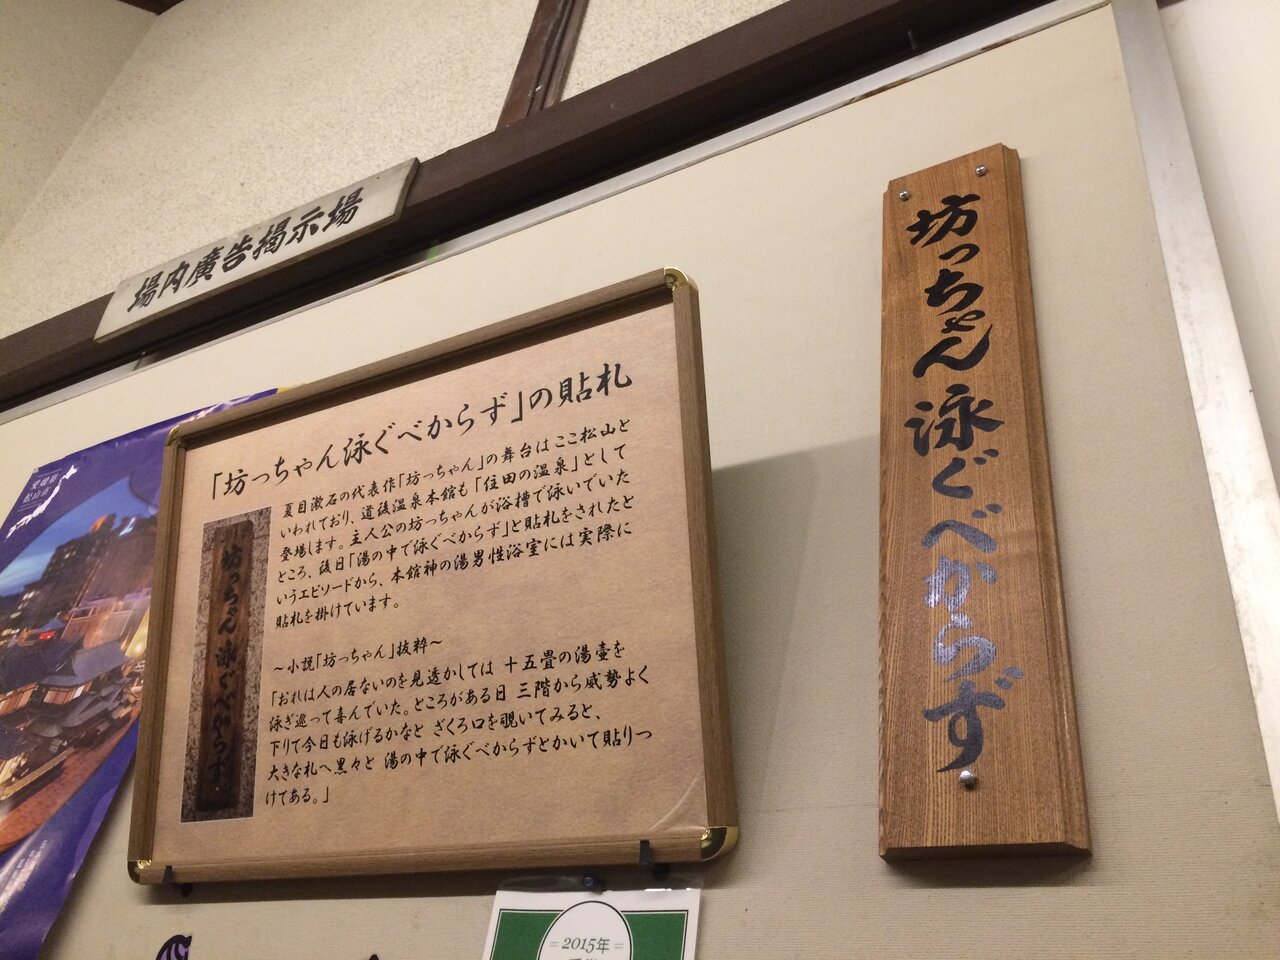 場内廣告掲示場
「坊っちゃん泳ぐべからず」の貼札
夏目漱石の代表作「坊っちゃん」の舞台はここ松山と
いわれており、道後温泉本館も「住田の温泉」として
登場します。主人公の坊っちゃんが浴槽で泳いでいた
ところ、後日「湯の中で泳ぐべからず」と貼札をされたと
いうエピソードから、本館神の湯男性浴室には実際に
貼札を掛けています。
～小説「坊っちゃん」抜粋～
「おれは人の居ないのを見透かしては 十五畳の湯壷を
泳ぎ巡って喜んでいた。ところがある日 三階から威勢よく
下りて今日も泳げるかなと ざくろ口を覗いてみると、
大きな札へ黒々と 湯の中で泳ぐべからずとかいて貼りつ
けてある。」
坊っちゃん泳ぐべからず
坊っちゃん泳ぐべからず
愛媛県
松山市
2015年